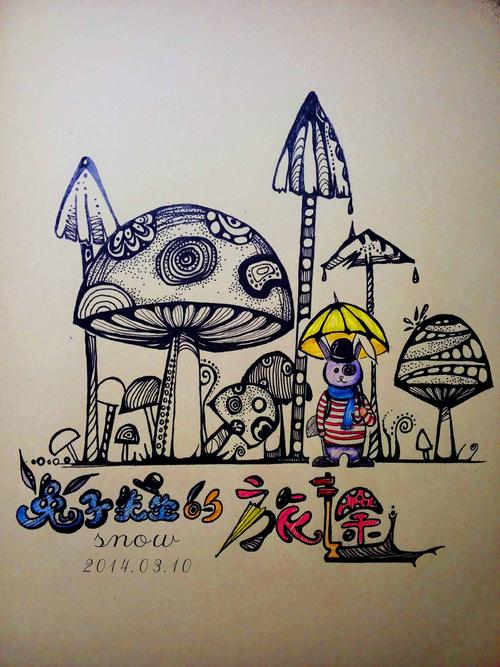 兔子先生的旅途
snow
2014.03.10